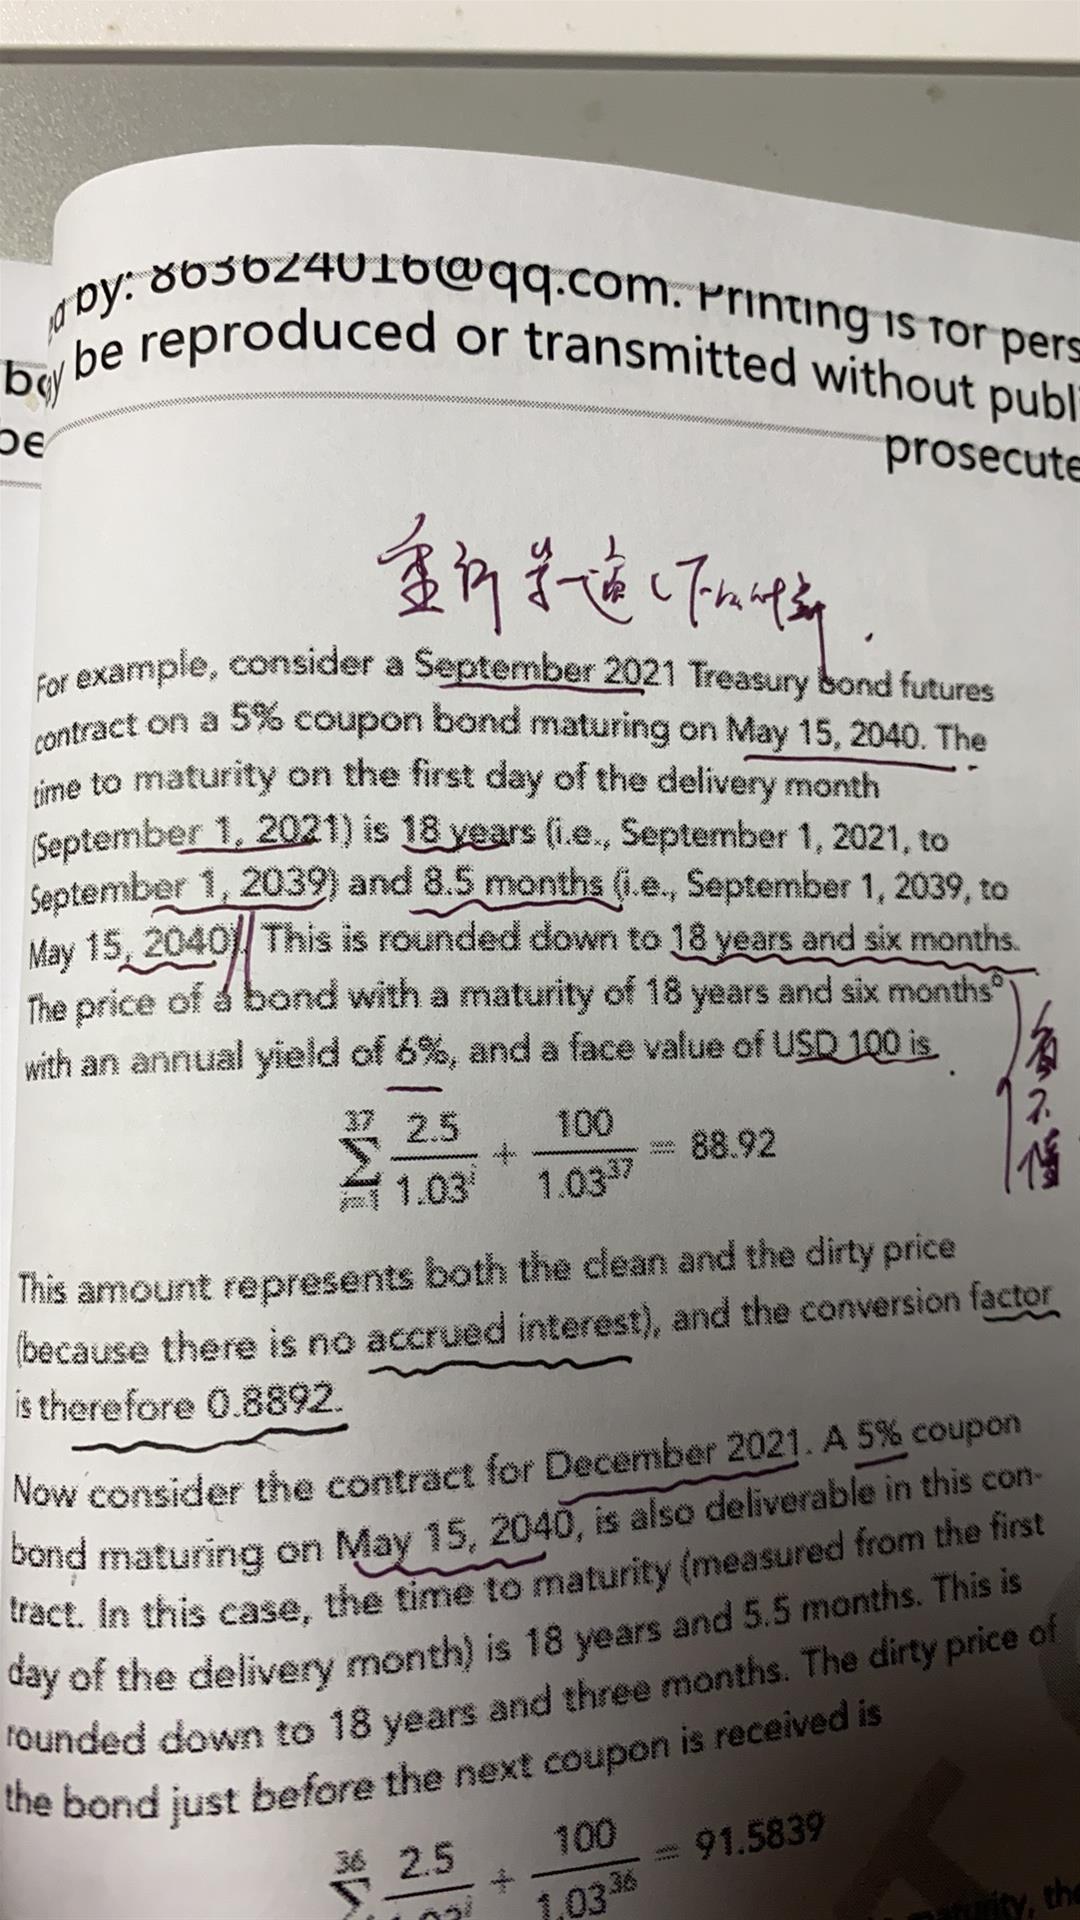 by: 863624016@qq.com. Printing is for pers
bo
ay be reproduced or transmitted without publ
be
prosecute
For example, consider a September 2021 Treasury bond futures
contract on a 5% coupon bond maturing on May 15, 2040. The
time to maturity on the first day of the delivery month
(September 1, 2021) is 18 years (i.e., September 1, 2021, to
September 1, 2039) and 8.5 months (i.e., September 1, 2039, to
May 15, 2040). This is rounded down to 18 years and six months.
The price of a bond with a maturity of 18 years and six months⁶
with an annual yield of 6%, and a face value of USD 100 is
看不懂
37 2.5 100
∑ ─── + ─── = 88.92
i=1 1.03^i 1.03^37
This amount represents both the clean and the dirty price
(because there is no accrued interest), and the conversion factor
is therefore 0.8892.
Now consider the contract for December 2021. A 5% coupon
bond maturing on May 15, 2040, is also deliverable in this con-
tract. In this case, the time to maturity (measured from the first
day of the delivery month) is 18 years and 5.5 months. This is
rounded down to 18 years and three months. The dirty price of
the bond just before the next coupon is received is
36 2.5 100
∑ ─── + ─── = 91.5839
1.03^i 1.03^36
maturity, the